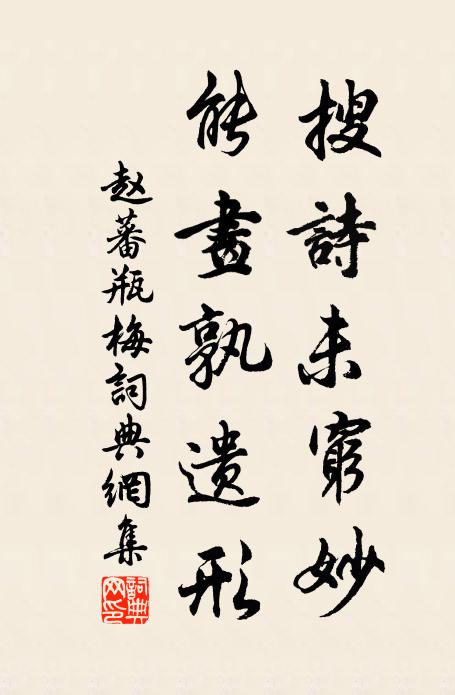 搜詩未窮妙
能畫孰遺形
赵蕃瓶梅詞典網集
詞典网印